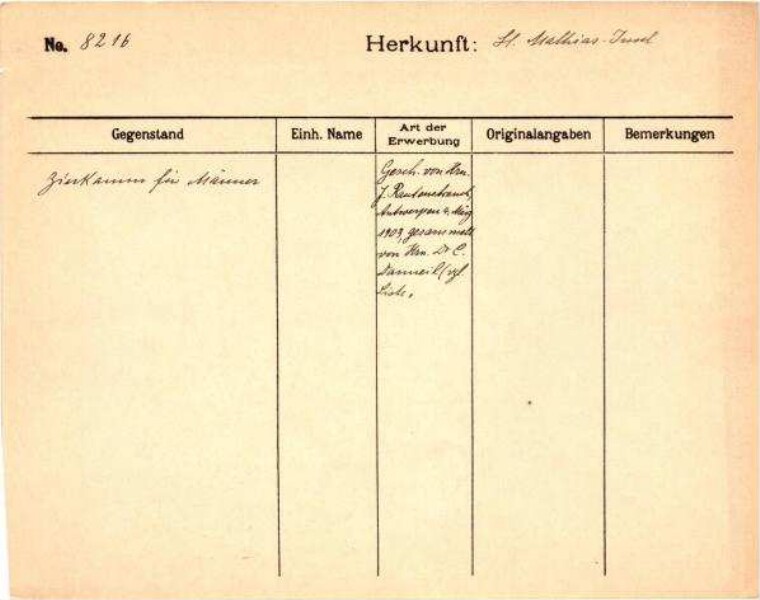 No. 8216 Herkunft: St. Mathias-Insel
Gegenstand Einh. Name Art der Erwerbung Originalangaben Bemerkungen
Zierkamm für Männer
Gesch. von Hrn.
J.
Antwerpen 4. März
1903, gesammelt
von Hrn. Dr C.
Danneil (vgl.
Liste.